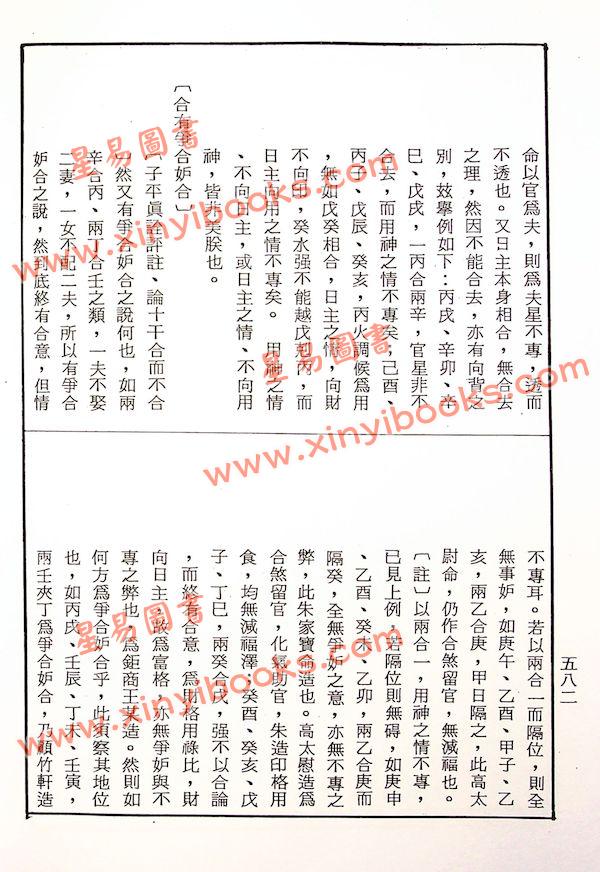 命以官爲夫，則爲夫星不專，透而
不透也。又日主本身相合，無合去
之理，然因不能合去，亦有向背之
別，玆擧例如下：丙戌、辛卯、辛
巳、戊戌，一丙合兩辛，官星非不
合去，而用神之情不專矣；己酉、
丙子、戊辰、癸亥，丙火調候爲用
，無如戊癸相合，日主之情，向財
不向印，癸水强不能越戊剋丙，而
日主向用之情不專矣。　用神之情
、不向日主，或日主之情、不向用
神，皆非美朕也。
〔合有爭合妒合〕
〔子平眞詮評註、論十干合而不合
〕然又有爭合妒合之說何也，如兩
辛合丙、兩丁合壬之類，一夫不娶
二妻，一女不配二夫，所以有爭合
妒合之說，然到底終有合意，但情
不專耳。若以兩合一而隔位，則全
無事妒，如庚午、乙酉、甲子、乙
亥，兩乙合庚，甲日隔之，此高太
尉命，仍作合煞留官，無減福也。
〔註〕以兩合一，用神之情不專，
已見上例，若隔位則無碍，如庚申
、乙酉、癸未、乙卯，兩乙合庚而
隔癸，全無爭妒之意，亦無不專之
弊，此朱家寶命造也。高太慰造爲
合煞留官，化氣助官，朱造印格用
食，均無減福澤，癸酉、癸亥、戊
子、丁巳，兩癸合戊，强不以合論
，而終有合意，爲財格用祿比，財
向日主，故爲富格，亦無爭妒與不
專之弊也，爲鉅商王某造。然則如
何方爲爭合妒合乎，此須察其地位
也，如丙戌、壬辰、丁未、壬寅，
兩壬夾丁爲爭合妒合，乃顧竹軒造
五八二
星易圖書
www.xinyibooks.com
星易圖書
www.xinyibooks.com
星易圖書
www.xinyibooks.com